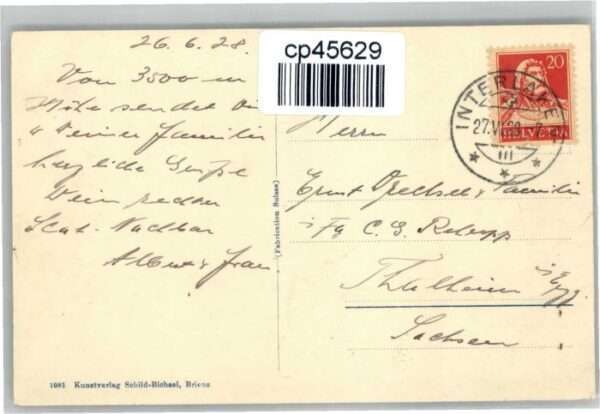 26.6.28.
Von 3500 m
Höhe sendet Dir
u Deiner Familie
herzliche Grüße
Dein
Scat. Nachbar
Albert & Frau
cp45629
20
HELVETIA
INTERLAKEN
27.VI.28
III
(Fabrication Suisse)
Herrn
Ernst & Familie
Fa C. G.
Thalheim i/Erzg.
Sachsen
1081 Kunstverlag Schild-Bichsel, Brienz